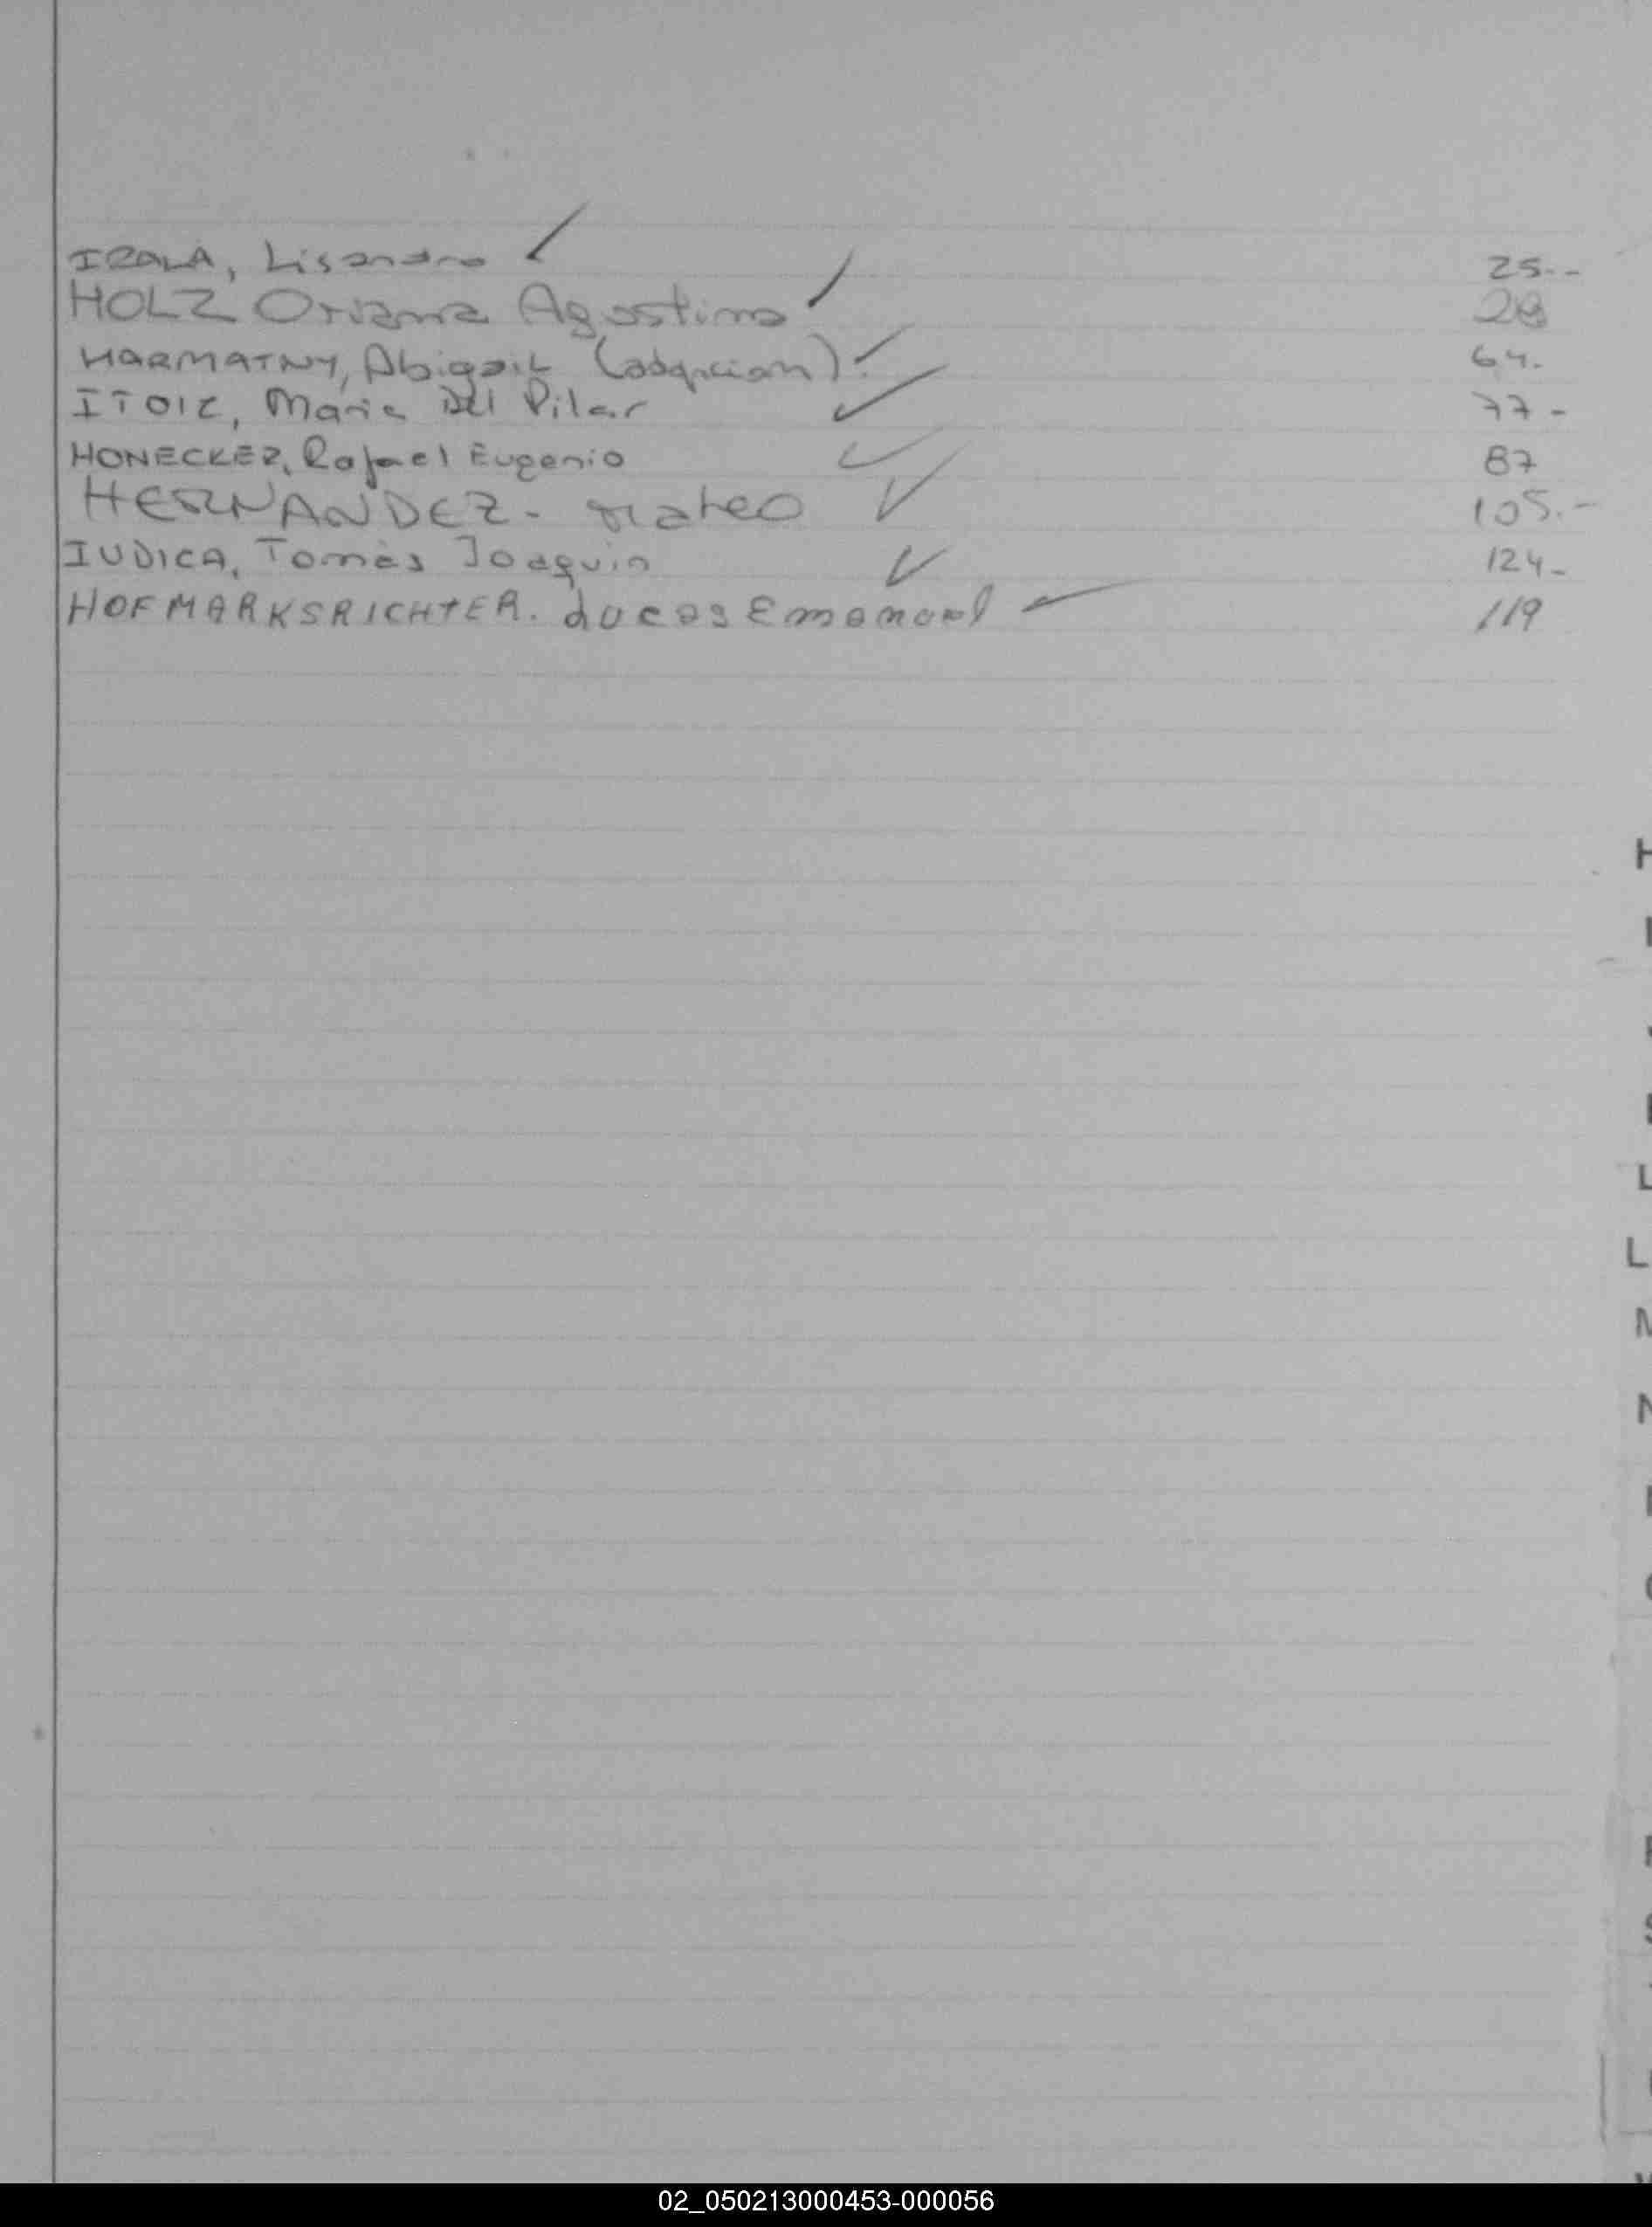 IRALA, Lisandro ✓ 25.-
HOLZ Oriana Agostina ✓ 28
HARMATNY, Abigail (adopcion) ✓ 64.
ITOIZ, Maria Del Pilar ✓ 77-
HONECKER, Rafael Eugenio ✓ 87
HERNANDEZ - Mateo ✓ 105.-
IUDICA, Tomás Joaquin ✓ 124-
HOFMARKSRICHTER. Lucas Emanuel ✓ 119
H
I
L
L
M
N
S
02_050213000453-000056